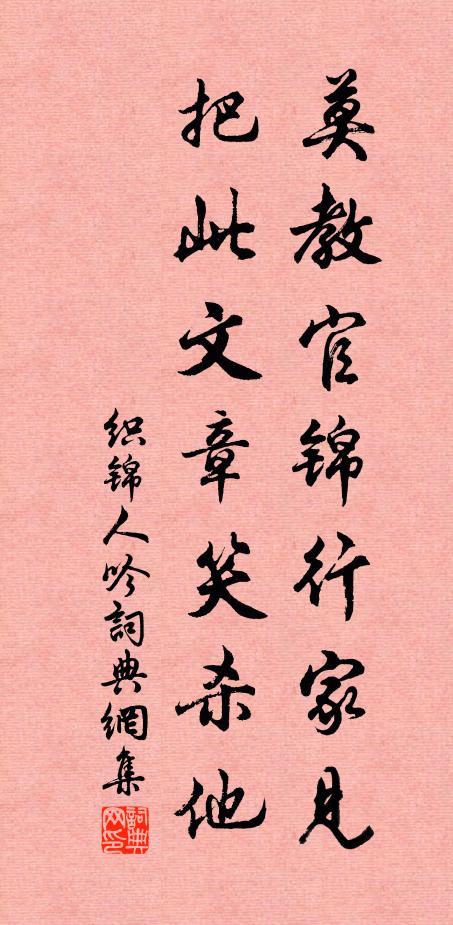 莫教官锦行家见
把此文章笑杀他
织锦人吟詞典網集
詞典网印